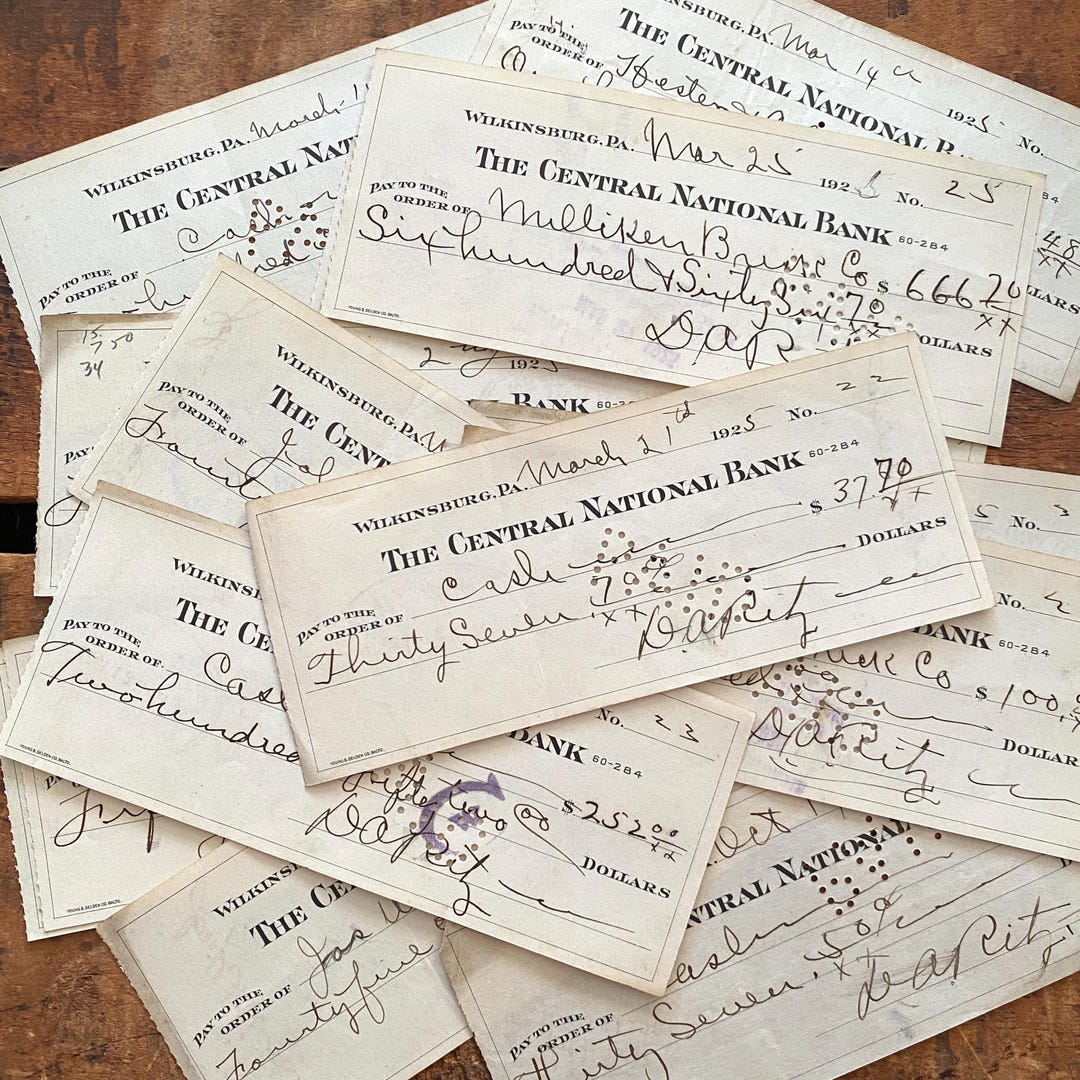 WILKINSBURG, PA. Mar 14th 1925 No.
PAY TO THE
ORDER OF
THE CENTRAL NATIONAL
48
xx
WILKINSBURG, PA. March
THE CENTRAL NAT
PAY TO THE
ORDER OF Cash
WILKINSBURG, PA. Mar 25 1925 No. 25
THE CENTRAL NATIONAL BANK 60-284
PAY TO THE
ORDER OF Milliken Bros Co $ 666 70
xx
Six hundred & Sixty Six 70 DOLLARS
YOUNG & SELDEN CO. BALTO.
15
7 50
34
1925
BANK 60-2
WILKINSBURG, PA.
THE CENT
PAY TO THE
ORDER OF
WILKINSBURG, PA. March 21st 1925 No. 22
THE CENTRAL NATIONAL BANK 60-284
PAY TO THE
ORDER OF Cash $ 37 70
xx
Thirty Seven 70 DOLLARS
xx
D.A. Ritz
YOUNG & SELDEN CO. BALTO.
No. 3
No.
BANK 60-284
Co $ 100.
DOLLARS
D A Ritz
WILKINSB
THE CE No. 23
BANK 60-284
PAY TO THE
ORDER OF Cas $ 252 00
xx
Two hundred Fifty two 00 DOLLARS
D A Ritz
YOUNG & SELDEN CO. BALTO.
YOUNG & SELDEN CO. BALTO.
WILKINS
THE CE
PAY TO THE
ORDER OF Jas
Forty five
Oct 1
NTRAL NATIONAL
PAY TO THE
ORDER OF
Thirty Seven 50
xx
D A Ritz